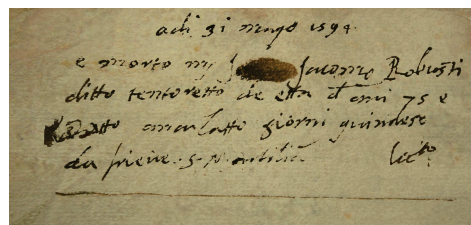 adi 31 mazo 1594
e morto mf Jacomo Robusti
ditto tentoretto de etta d anni 75 e
stato malatto giorni quindese
da freve. s. marcilian